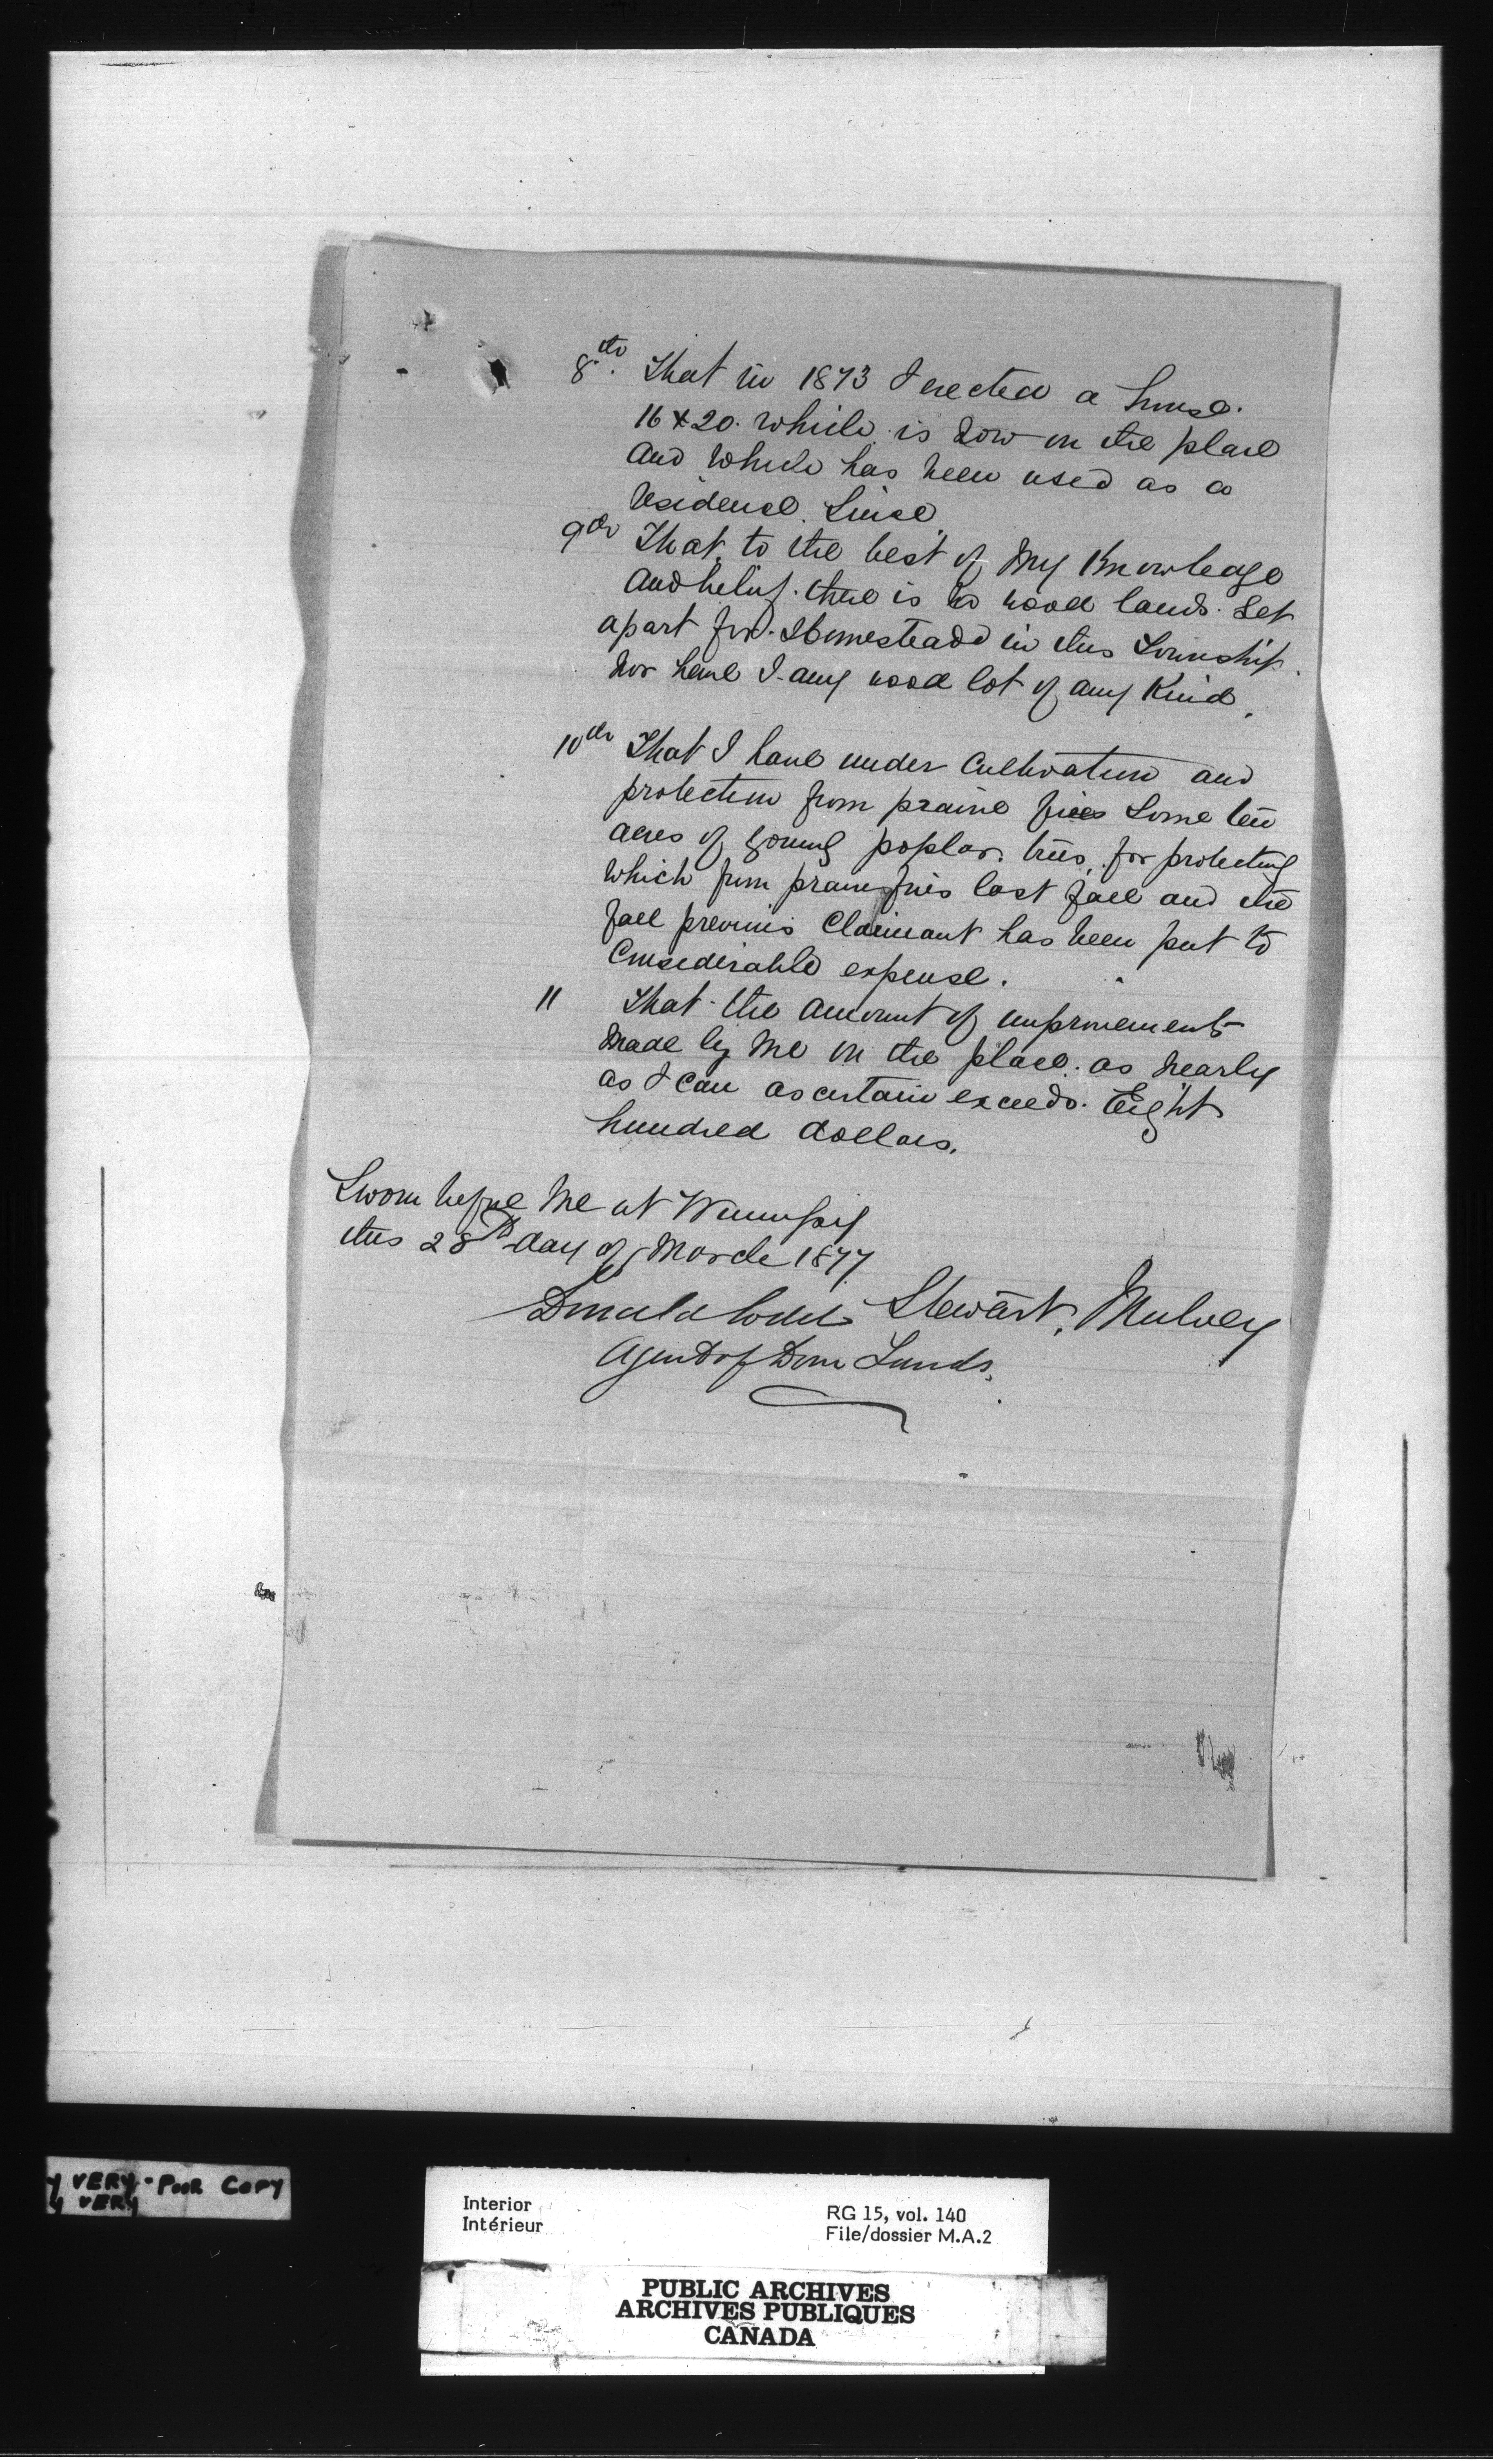 8th. That in 1873 I erected a house.
16 x 20. which is now on the place
and which has been used as a
residence since.
9th That to the best of my Knowledge
and belief. there is no wood lands. Set
apart for Homesteads in this Township.
nor have I any wood lot of any Kind.
10th That I have under Cultivation and
protection from prairie fires some ten
acres of young poplar trees, for protecting
which from prairie fires last fall and the
fall previous Claimant has been put to
Considerable expense.
11 That the amount of improvements
made by me on the place. as nearly
as I can ascertain exceeds. Eight
hundred dollars.
Sworn before me at Winnipeg
this 28th day of March 1877
Donald Codd Stewart. Mulvey
Agent of Dom Lands.
y VERY - POOR COPY
y VERY
Interior
Intérieur
RG 15, vol. 140
File/dossier M.A.2
PUBLIC ARCHIVES
ARCHIVES PUBLIQUES
CANADA